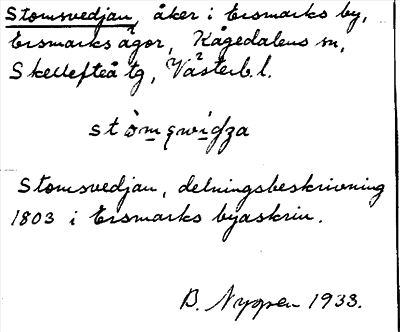 Stomsvedjan, åker i Ersmarks by,
Ersmarks ägor, Kågedalens sn,
Skellefteå tg, Västerb. l.
Stomsvedjan, delningsbeskrivning
1803 i Ersmarks byaskrin.
B. Nygren 1933.